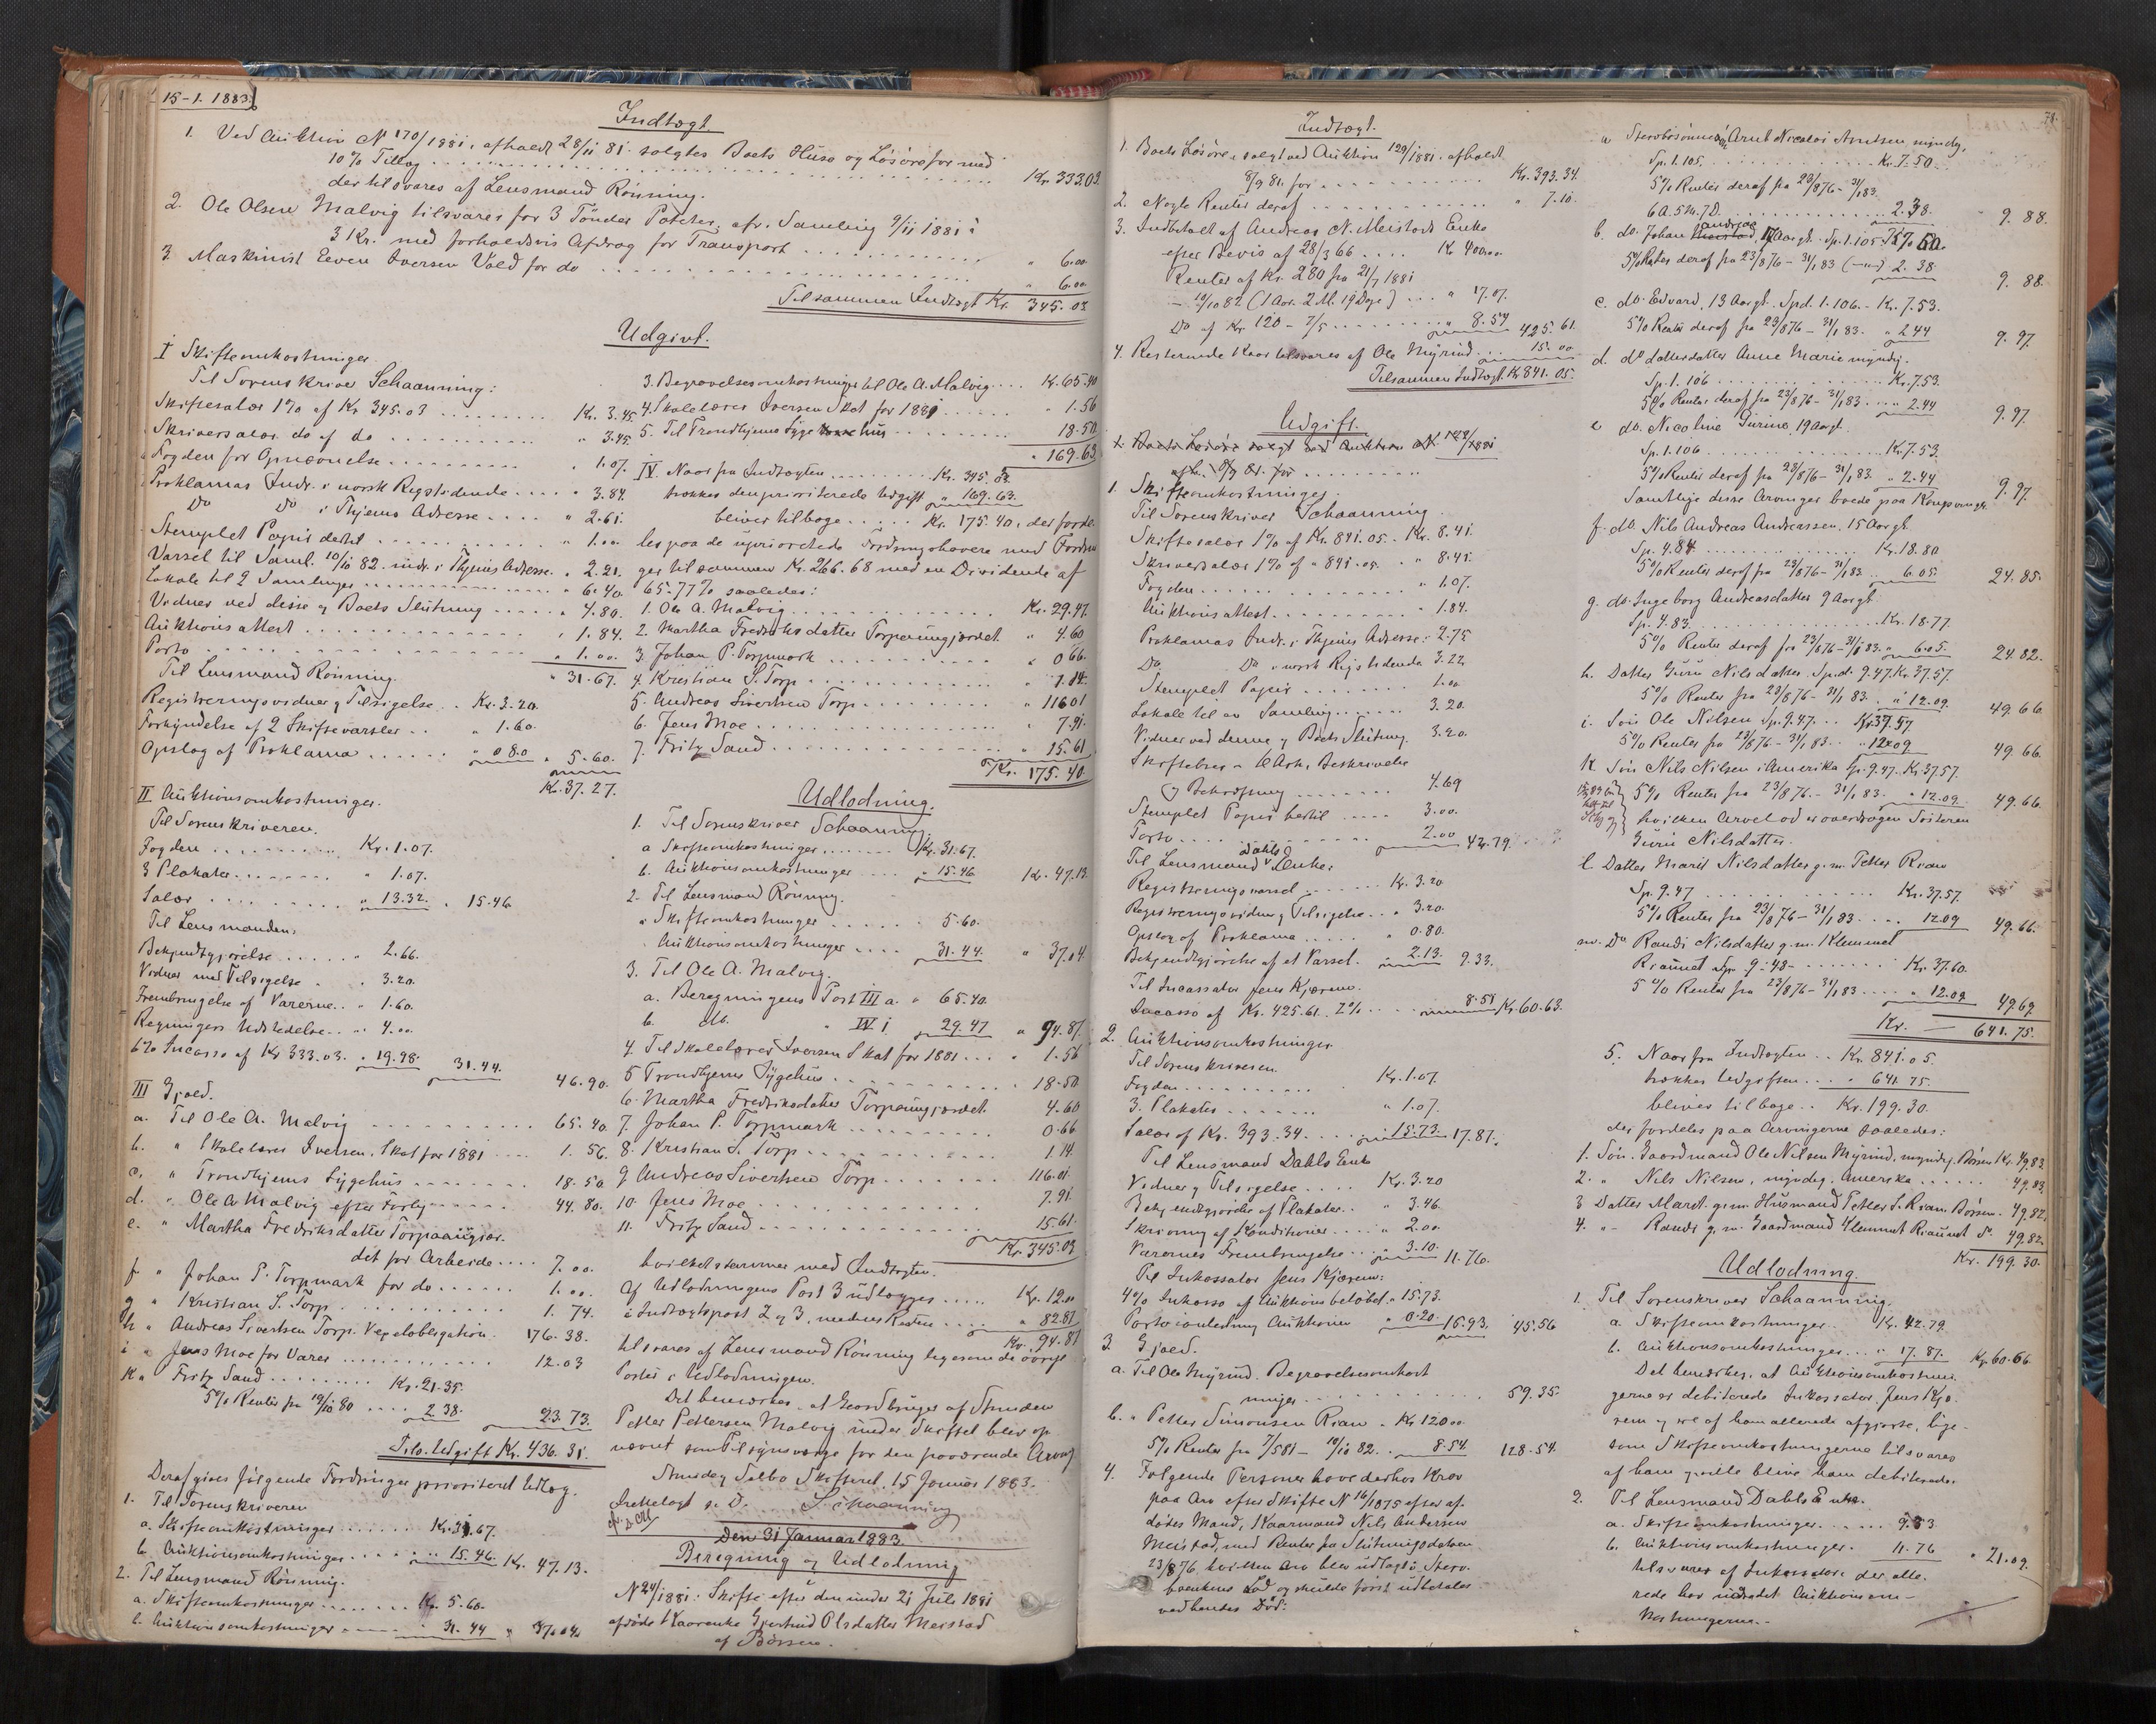 15-1. 1883.
Indtægt
1. Ved Auktion N 170/1881, afholdt 28/11 81. solgtes Boets Huse og Løsøre for med
10% Tillæg . . . . . Kr. 333.03.
der tilsvares af Lensmand Rönning.
2. Ole Olsen Malvig tilsvarer for 3 Tönder Poteter, cfr. Samling 9/11 1881 à
3 Kr. med forholdsvis Afdrag for Transport . . . . " 6.00
3 Maskinist Even Iversen Vold for do . . . . " 6.00
Tilsammen Indtægt Kr. 345.03
Udgivt.
I Skifteomkostninger.
Til Sorenskriver Schaanning:
Skiftesalær 1% af Kr 345.03 . . . . Kr. 3.45
Skriversalær do af do . . . . " 3.45
Fogden for Opnævnelse . . . . " 1.07.
Proklamas Indr. i norsk Rigstidende . . . . " 3.84.
Do Do i Thjems Adresse . . . . " 2.61.
Stemplet Papir dertil . . . . " 1.00
Varsel til Saml. 10/10 82. indr. i Thjems Adresse. " 2.21.
Lokale til 2 Samlinger . . . . " 6.40
Vidner ved disse og Boets Slutning . . . . " 4.80.
Auktionsattest . . . . " 1.84.
Porto . . . . " 1.00.
" 31.67.
Til Lensmand Rönning.
Registreringsvidner og Tilsigelse . . Kr. 3.20.
Forkyndelse af 2 Skiftevarsler . . " 1.60.
Opslag af Proklama . . . . " 0.80. " 5.60.
Kr. 37.27.
II Auktionsomkostninger.
Til Sorenskriveren.
Fogden . . . . Kr. 1.07.
3 Plakater . . . . " 1.07.
Salær . . . . " 13.32. " 15.46
Til Lensmanden:
Bekjendtgjörelse . . . . " 2.66.
Vidner med Tilsigelse . " 3.20.
Frembringelse af Varerne . . " 1.60.
Regningers Udstedelse . . " 4.00.
6% Incasso af Kr 333.03. " 19.98. 31.44.
46.90.
III Gjæld.
a. Til Ole A. Malvig . . . . 65.40
b. " Skolelærer Iversen, Skat for 1881 . . . . 1.56.
c. " Trondhjems Sygehus . . . . 18.50
d. " Ole A Malvig efter Forlig . . . . 44.80.
e. " Martha Fredriksdatter Torpaaugjær-
det for Arbeide . . . . 7.00.
f " Johan P. Torpmark for do . . . . 1.00.
g " Kristian S. Torp . . . . 1.74.
h " Andreas Sivertsen Torp. Vexelobligation. 176.38.
i " Jens Moe for Varer . . . . 12.03
k " Fritz Sand . . . . Kr. 21.35.
5% Renter fra 19/10 80 . . . . 2.38. 23.73.
Tils. Udgift Kr. 436.31.
Deraf gives følgende Fordringer prioriteret Udlæg.
1. Til Sorenskriveren
a. Skifteomkostninger . . . . Kr. 31.67.
b. Auktionsomkostninger . . . . " 15.46. Kr. 47.13.
2. Til Lensmand Rönning.
a. Skifteomkostninger . . . . Kr. 5.60.
b. Auktionsomkostninger . . . . 31.44 " 37.04.
3. Begravelsesomkostninger til Ole A. Malvig . . . K. 65.40
4. Skolelærer Iversen Skat for 1881 . . . . " 1.56
5. Til Trondhjems Sygehus . . . . 18.50
" 169.63
IV. Naar fra Indtægten . . . . Kr. 345.03.
trækkes den prioriterede Udgift " 169.63.
bliver tilbage . . . . Kr. 175.40, der forde-
les paa de upriorterede Fordringshavere med Fordrin
ger tilsammen Kr. 266.68 med en Dividende af
65.77% saaledes:
1. Ole A. Malvig . . . . Kr. 29.47.
2. Martha Fredriksdatter Torpaaugjærdet " 4.60
3. Johan P. Torpmark . . . . " 0.66.
4. Kristian S. Torp . . . . " 1.14.
5. Andreas Sivertsen Torp . . . . " 116.01
6. Jens Moe . . . . " 7.91.
7. Fritz Sand . . . . " 15.61
Kr. 175.40.
Udlodning.
1. Til Sorenskriver Schaanning
a Skifteomkostninger . . . . Kr. 31.67.
b. Auktionsomkostninger . . . . " 15.46 Kr. 47.13.
2. Til Lensmand Rönning.
" Skifteomkostninger . . . . 5.60.
Auktionsomkostninger . . . . 31.44. " 37.04.
3. Til Ole A. Malvig.
a. Beregningens Post III a. " 65.40.
b. do. " IV 1 29.47 " 94.87.
4. Til Skolelærer Iversen Skat for 1881 . . . " 1.56
5 Trondhjems Sygehus . . . . " 18.50
6. Martha Fredriksdatter Torpaaugjærdet. 4.60
7. Johan P. Torpmark . . . . 0.66
8. Kristian S. Torp . . . . 1.14.
9 Andreas Sivertsen Torp . . . . 116.01.
10. Jens Moe . . . . 7.91.
11. Fritz Sand . . . . 15.61.
Kr. 345.03
hvilket stemmer med Indtægten.
Af Udlodningens Post 3 udlægges . . . . Kr. 12.00
i Indtægtspost 2 og 3, medens Resten . . . . " 82.87
Kr. 94.87
tilsvares af Lensmand Rönning ligesom de övrige
Poster i Udlodningen.
Det bemærkes, at Gaardbruger af Strinden
Petter Pettersen Malvig under Skiftet blev op-
nævnt som Tilsynsværge for den fraværende Arving
Strinda og Selbo Skifteret. 15 Januar 1883.
Schaanning
Den 31 Januar 1883.
Beregning og Udlodning
N 24/1881. i Skifte efter den under 21 Juli 1881
afdøde Kaarenke Gjertrud Olsdatter Meistad
af Børsen.
Indtægt.
1. Boets Løsøre, solgt ved Auktion 129/1881. afholdt
8/9 81. for . . . . Kr. 393.34.
2. Nogle Renter deraf . . . . " 7.10.
3. Indbetalt af Andreas N. Meistads Enke
efter Bevis af 28/3 66 . . . . Kr. 400.00
Renter af Kr. 280 fra 21/7 1881
- 10/10 82. (1 Aar. 2 M. 19 Dage) . . . " 17.07.
Do af Kr. 120 - 7/5 . . . . " 8.54 425.61.
4. Resterende Kaar tilsvares af Ole Myrind . . . 15.00
Tilsammen Indtægt Kr 841.05.
Udgift.
1. Boets Løsøre solgt ved Auktion N 129/1881
afh. 8/9 81. for . . . .
1. Skifteomkostninger.
Til Sorenskriver Schaanning.
Skiftesalær 1% af Kr. 841.05. - Kr. 8.41.
Skriversalær 1% af " 841.05. . " 8.41.
Fogden . . . . " 1.07.
Auktionsattest . . . . " 1.84.
Proklamas Indr. i Thjems Adresse: 2.75
Do Do i norsk Rigstidende 3.22
Stemplet Papir . . . . 1.00
Lokale til en Samling . . . . 3.20.
Vidner ved denne og Boets Slutning. 3.20.
Skiftebrev - 6 Ark, Beskrivelse
og Bekræftning . . . . 4.69
Stemplet Papir hertil . . . . 3.00.
Porto . . . . 2.00 42.79.
Til Lensmand Dahls Enke:
Registreringsvarsel . . . . Kr. 3.20
Registreringsvidner og Tilsigelse . . " 3.20.
Opslag af Proklama . . . . " 0.80.
Bekjendtgjörelse af et Varsel. " 2.13 9.33.
Til Incassator Jens Kjærem.
Incasso af Kr. 425.61. 2% . . . . 8.51 Kr. 60.63.
2. Auktionsomkostninger
Til Sorenskriveren.
Fogden . . . . Kr. 1.07.
3. Plakater . . . . " 1.07.
Salær af Kr. 393.34 . . . . 15.73. 17.87.
Til Lensmand Dahls Enke
Vidner og Tilsigelse . . . . Kr. 3.20
Bekjendtgjörelse af Plakater . . " 3.46.
Skrivning af Konditioner . . . . " 2.00.
Varernes Frembringelse . . . " 3.10. 11.76.
Til Inkassator Jens Kjærem:
4% Inkasso af Auktionsbelöbet. " 15.73.
Porto i anledning Auktionen " 0.20. 15.93. 45.56
3. Gjæld.
a. Til Ole Myrind. Begravelsesomkost
ninger . . . . 59.35.
b. " Petter Simonsen Rian . Kr 120.00
5% Renter fra 7/5 81 - 10/10 82 . . 8.54. 128.54.
4. Følgende Personer have derhos Krav
paa Arv efter Skifte N 16/1875 efter af-
dödes Mand, Kaarmand Nils Andersen
Meistad, med Renter fra Slutningsdatoen
23/8 76, hvilken Arv blev udlagt i Sterv-
boenkens Lod og skulde først udbetales
ved hendes Död:
78.
a Stervbosønnesøn Arnt Nicolai Arntsen myndig.
Sp. 1.105. . . . . Kr. 7.50
5% Renter deraf fra 23/8 76 - 31/1 83.
6 A. 5 M. 7 D. . . . . 2.38. " 9.88.
b. do. Johan Andreas, 17 Aargl. Sp. 1.105 Kr 7.50.
5% Renter deraf fra 23/8 76 - 31/1 83 2.38. 9.88.
c. do. Edvard, 13 Aargl. Spd. 1.106. - Kr. 7.53.
5% Renter deraf fra 23/8 76 - 31/1 83. " 2.44 9.97.
d. do datterdatter Anne Marie myndig.
Sp. 1.106 . . . . Kr. 7.53.
5% Renter deraf fra 23/8 76 - 31/1 83. . . " 2.44 9.97.
e do. Nicoline Gurine, 19 Aargl.
Sp. 1.106 . . . . Kr. 7.53.
5% Renter deraf fra 23/8 76 - 31/1 83. " 2.44 9.97.
Samtlige disse Arvinger boede paa Kongsvinger
f. do. Nils Andreas Andreassen, 15 Aargl.
Sp. 4.84 . . . . Kr. 18.80
5% Renter deraf fra 23/8 76 - 31/1 83 . . 6.05. 24.85.
g. do. Ingeborg Andreasdatter 9 Aargl.
Sp. 4.83. . . . . Kr. 18.77.
5% Renter deraf fra 23/8 76 - 31/1 83. " 6.05. 24.82.
h. Datter Guru Nilsdatter, Spd. 9.47. Kr. 37.57.
5% Renter fra 23/8 76 - 31/1 83. " 12.09. 49.66
i. Søn Ole Nilsen Sp. 9.47. . . Kr 37.57
5% Renter fra 23/8 76 - 31/1 83. . " 12.09 49.66
k Søn Nils Nilsen i Amerika Sp. 9.47. Kr. 37.57.
5% Renter fra 23/8 76. - 31/1 83. . " 12.09 49.66.
hvilken Arvelod er overdragen Søsteren
Guru Nilsdatter.
l. Datter Marit Nilsdatter g. m. Petter Rian
Sp. 9.47 . . . . Kr. 37.57.
5% Renter fra 23/8 76 - 31/1 83 . . . . 12.09 49.66.
m. Do Randi Nilsdatter g. m. Klemmet
Riaunet Sp. 9-48- . . . . Kr. 37.60.
5% Renter fra 23/8 76 - 31/1 83 . . . . " 12.09 49.69.
Kr. — 641.75.
5. Naar fra Indtægten . . Kr. 841.05
trækkes Udgiften . . . . " 641.75.
bliver tilbage . . Kr. 199.30.
der fordeles paa Arvingerne saaledes:
1. Søn. Gaardmand Ole Nilsen Myrind, myndig. Børsen Kr. 49.83.
2. " Nils Nilsen, myndig. Amerika . . . . 49.83.
3 Datter Maret. g. m. Husmand Petter S. Rian. Børsen. 49.82.
4. " Randi g. m. Gaardmand Klemmet Riaunet do. 49.82.
Kr. 199.30.
Udlodning.
1. Til Sorenskriver Schaanning.
a. Skifteomkostninger . . Kr. 42.79
b. Auktionsomkostninger . . . . " 17.87. Kr 60.66
Det bemærkes, at Auktionsomkostnin-
gerne er debiterede Inkassator Jens Kjæ-
rem og ere af ham allerede afgjorte, lige-
som Skifteomkostningerne tilsvares
af ham og ville blive ham debiterede.
2. Til Lensmand Dahls Enke.
a. Skifteomkostninger . . . . 9.33
b. Auktionsomkostninger. 11.76 " 21.09.
tilsvares af Inkassator der alle-
rede har indbetalt Auktionsom-
kostningerne. -